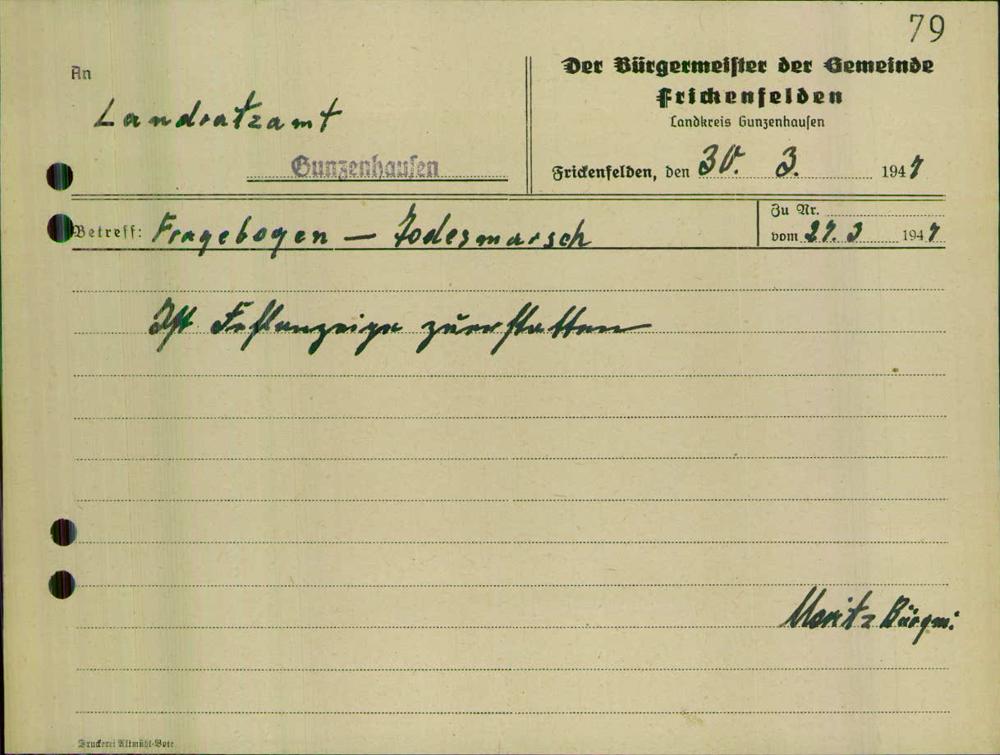 79
An
Landratzamt
Gunzenhausen
Der Bürgermeister der Gemeinde
Frickenfelden
Landkreis Gunzenhausen
Frickenfelden, den 30. 3. 1947
Betreff: Fragebogen — Todesmarsch
Zu Nr.
vom 27. 3 1947
Ist Fehlanzeige zuerstatten
Moritz Bürgm.
Druckerei Altmühl-Bote